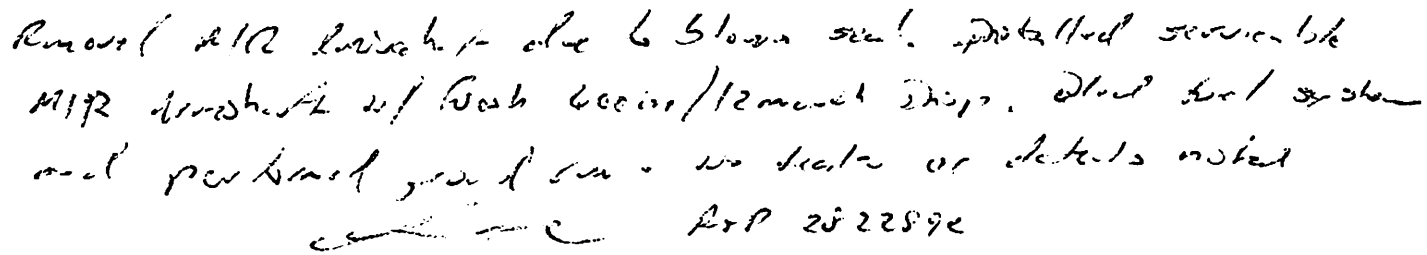 Removed M/R driveshaft due to blown seal. Installed serviceable
M/R driveshaft w/ fresh 600hr/12 month Insp. Bled fuel system
and performed ground run - no leaks or defects noted
A&P 2822892